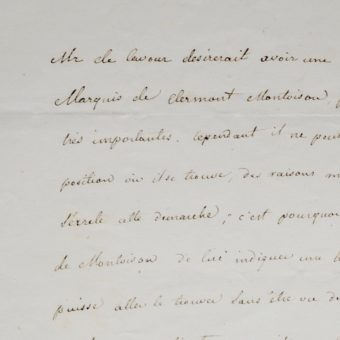 Mr de Cavour désirerait avoir une
Marquis de Clermont Montoison,
très importantes. Cependant il ne peut
position où il se trouve, des raisons
cette démarche; c'est pourquoi
de Montoison de lui indiquer une
puisse aller le trouver sans être vu